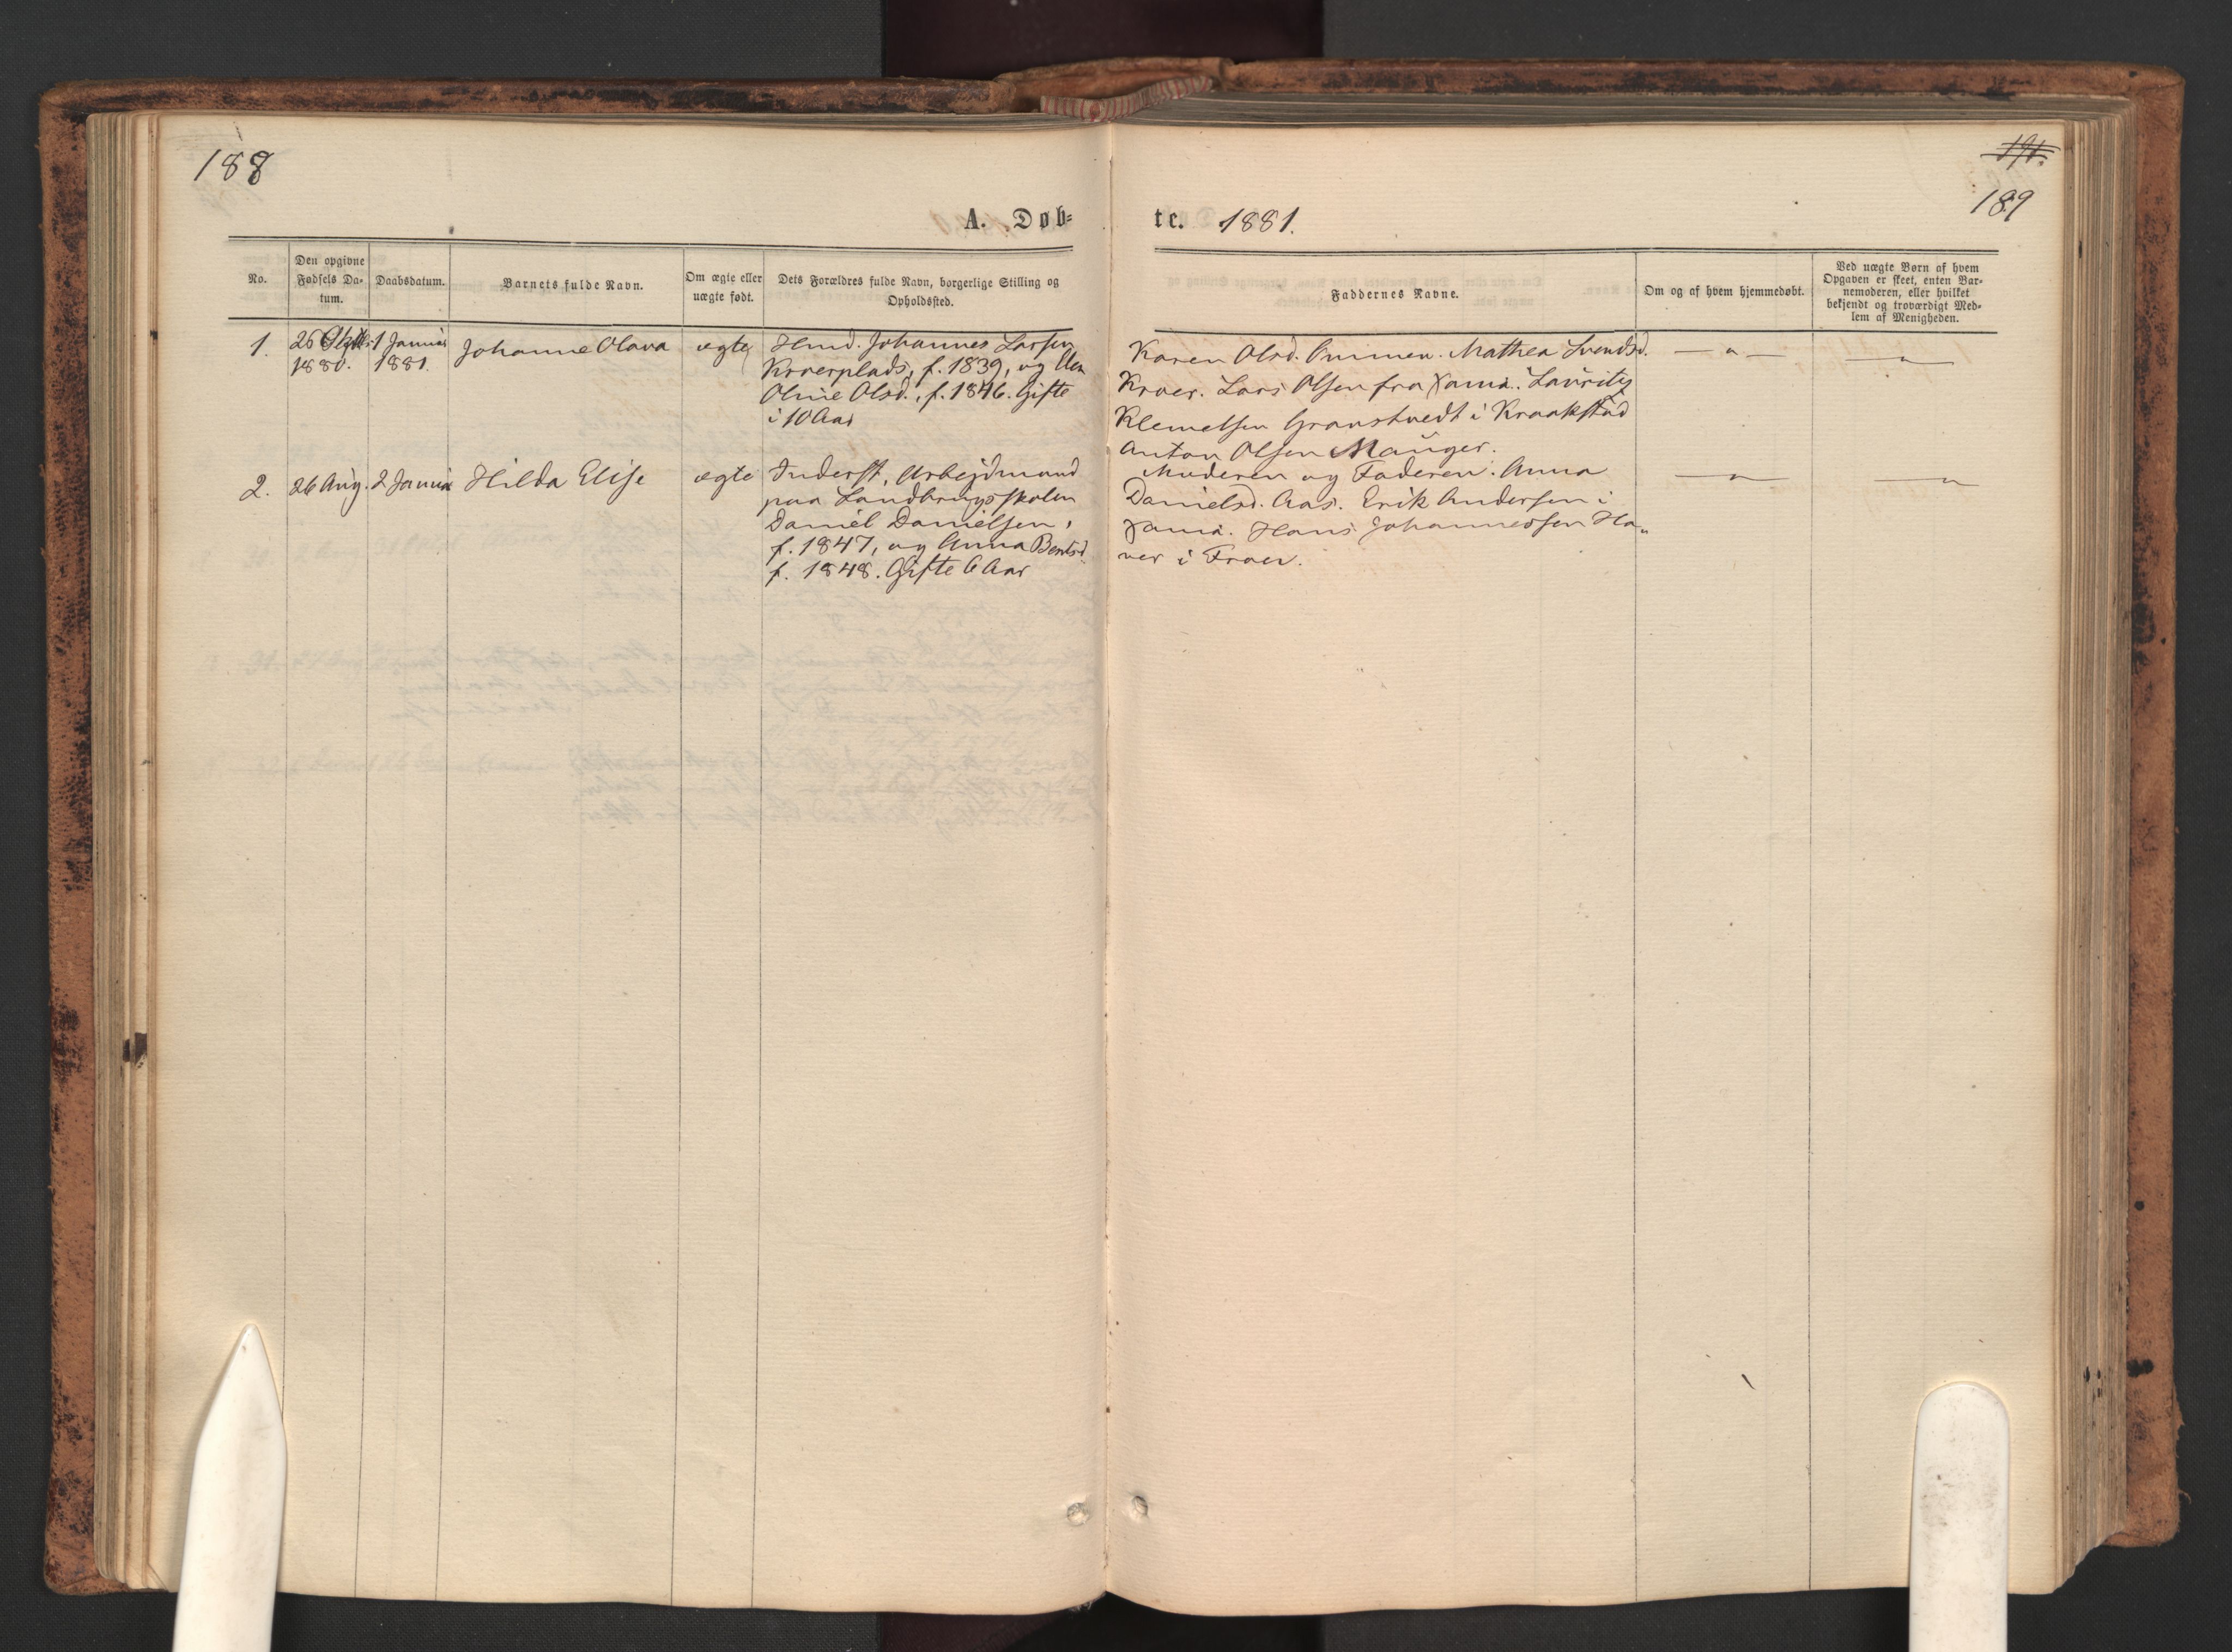 188
A. Døb-
No.
Den opgivne
Fødsels Da-
tum.
Daabsdatum.
Barnets fulde Navn.
Om ægte eller
uægte født.
Dets Forældres fulde Navn, borgerlige Stilling og
Opholdssted.
1.
26
1880.
1 Januar
1881.
Johanne Olava
ægte
Husmd. Johannes Larsen
Kroerplads, f. 1839, og
Oline Olsd., f. 1846. Gifte
i 10 Aar
2.
26 Aug.
2 Januar
Hilda Elise
ægte
Inderst, Arbejdmand
paa Landbrugsskolen
Daniel Danielsen,
f. 1847, og Anna Berntsd.
f. 1848. Gifte 6 Aar
191.
189
te. 1881.
Faddernes Navne.
Om og af hvem hjemmedøbt.
Ved uægte Børn af hvem
Opgaven er skeet, enten Bar-
nemoderen, eller hvilket
bekjendt og troværdigt Med-
lem af Menigheden.
Karen Olsd. Mathea Svendsd.
Kroer. Lars Olsen fra Xania. Lauritz
Klemetsen i Kraakstad
Anton Olsen Manger.
— " —
— " —
Moderen og Faderen. Anna
Danielsd. Aas. Erik Andersen i
Xania. Hans Johannessen Ha-
ver i Froen.
— " —
— " —